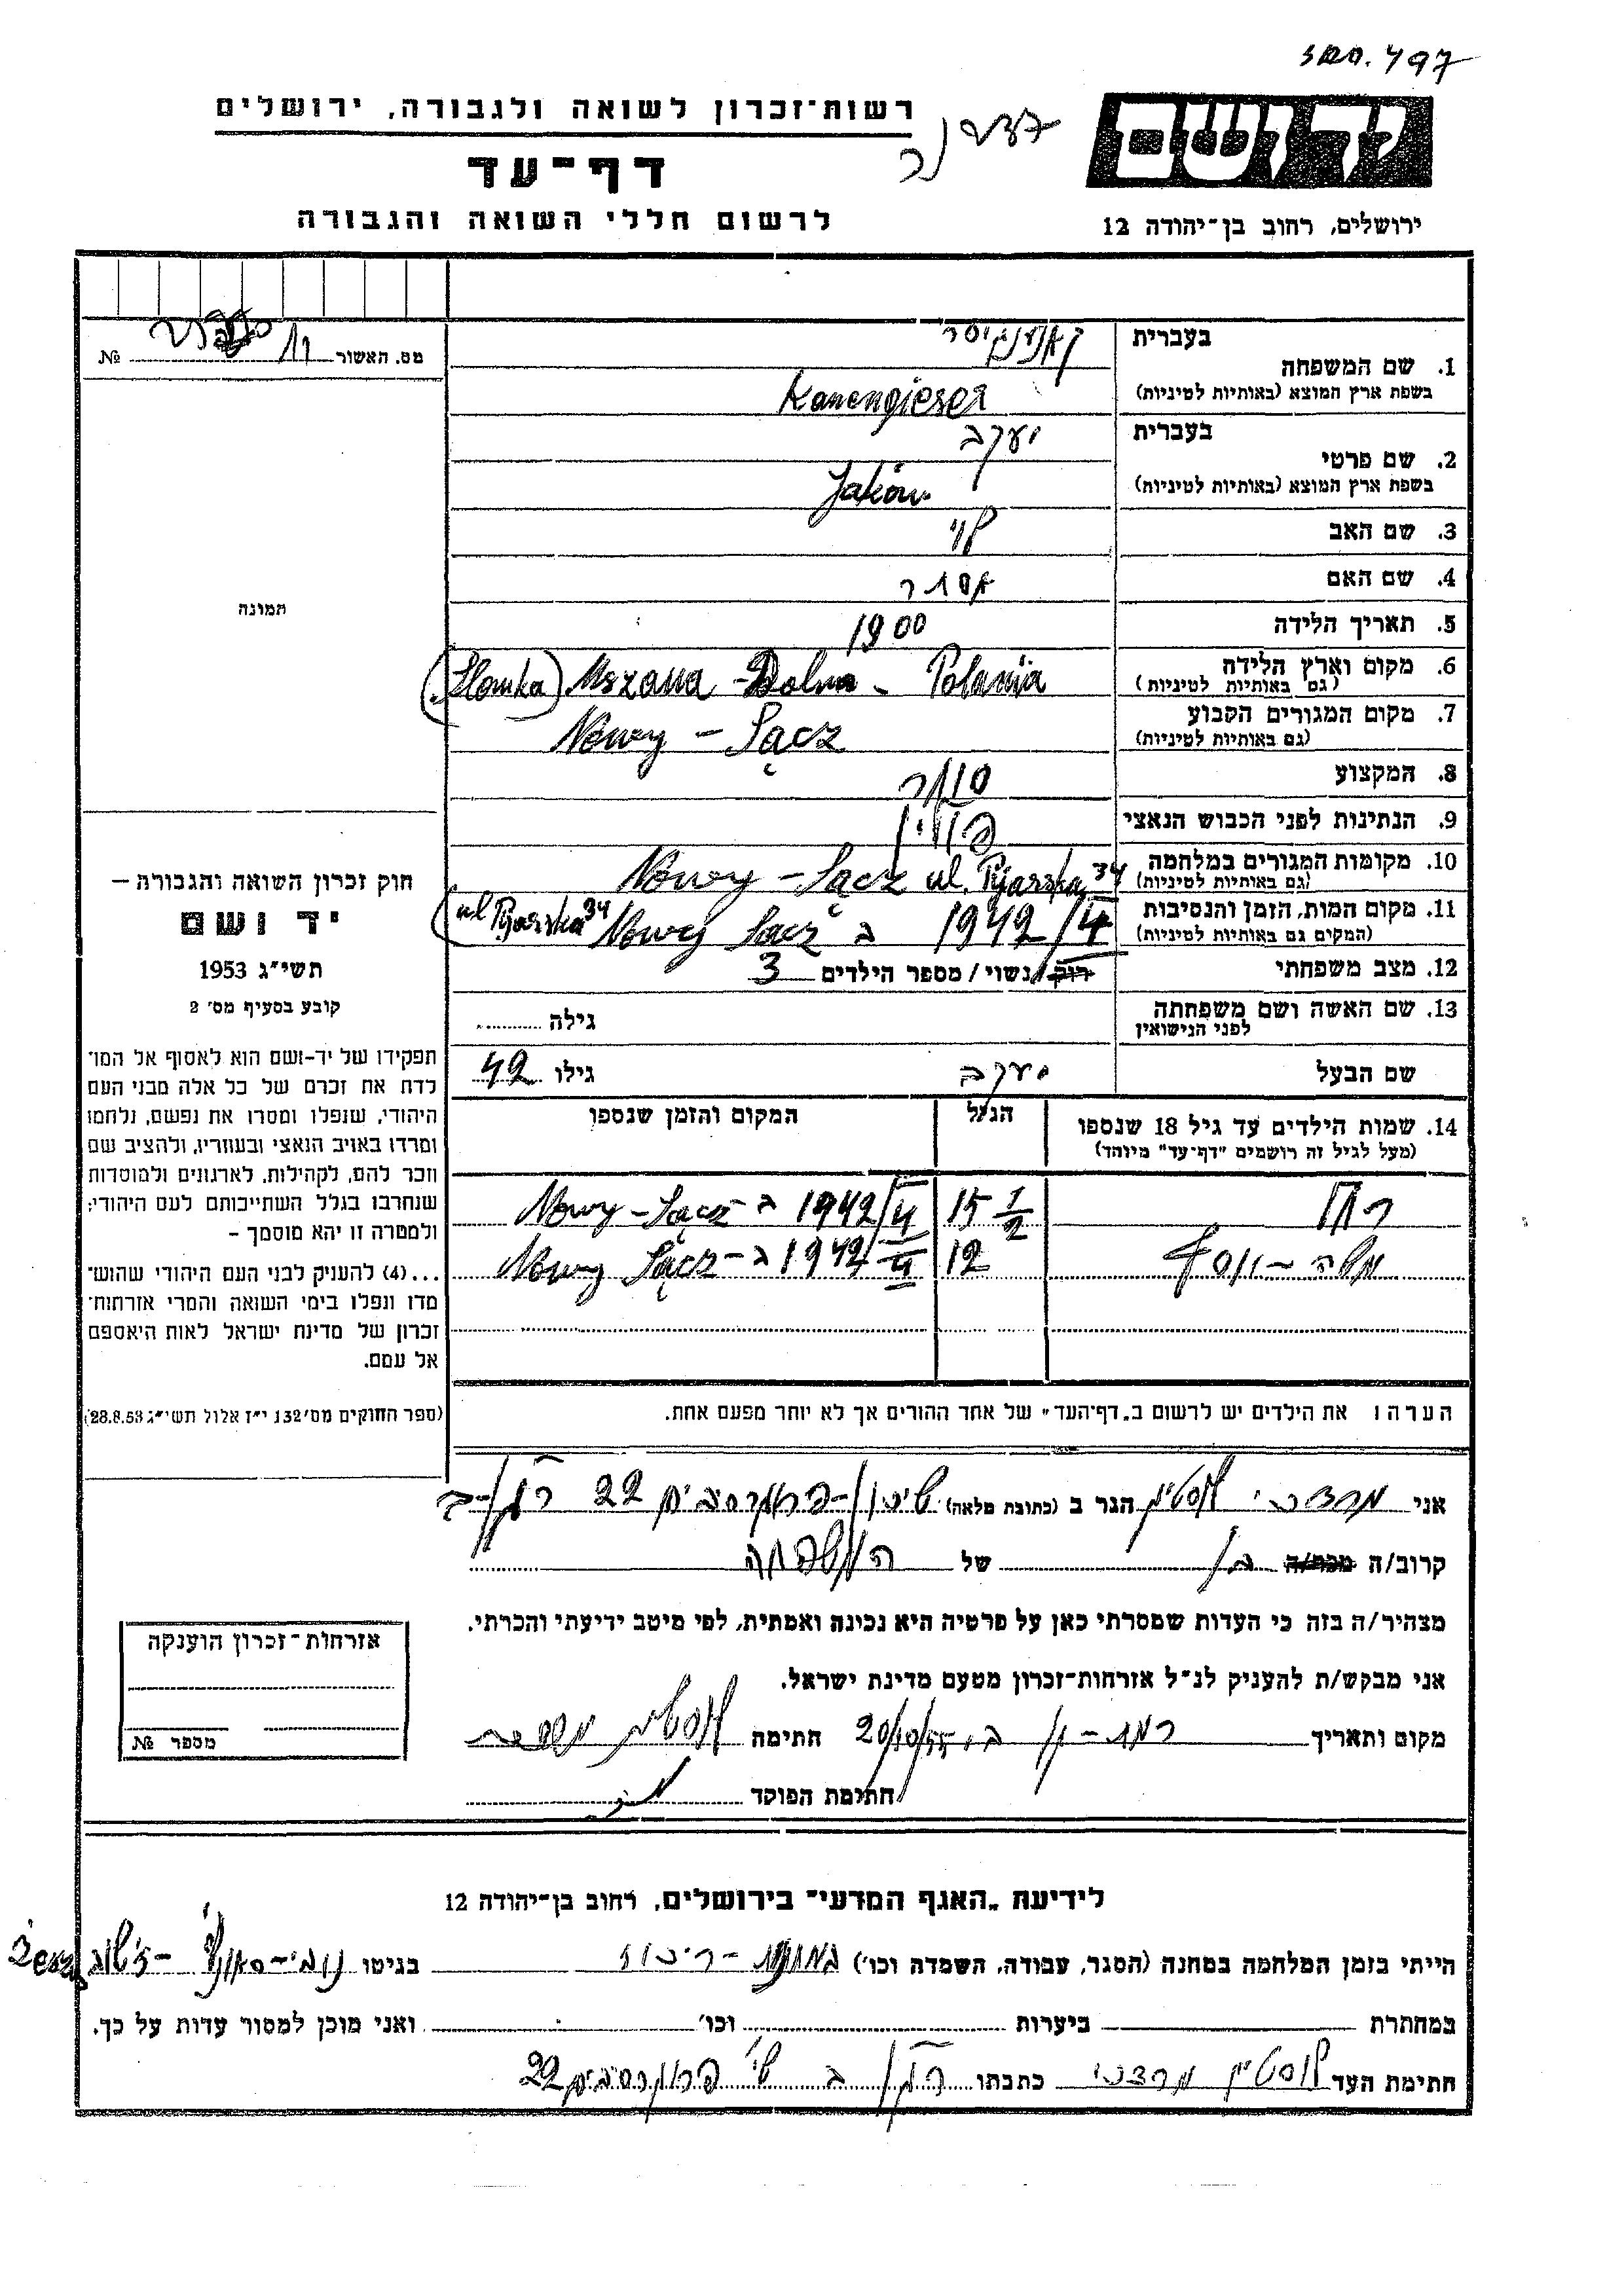 497
יד ושם
רשות־זכרון לשואה ולגבורה, ירושלים
דף־עד
לרשום חללי השואה והגבורה
ירושלים, רחוב בן־יהודה 12
מס. האשור № 
בעברית
1. שם המשפחה
בשפת ארץ המוצא (באותיות לטיניות) Kanengieser
בעברית יעקב
2. שם פרטי
בשפת ארץ המוצא (באותיות לטיניות) Jaków
3. שם האב
4. שם האם אסתר
5. תאריך הלידה 1900
6. מקום וארץ הלידה Mszana - Dolna - Polania
(גם באותיות לטיניות)
7. מקום המגורים הקבוע Nowy - Sącz
(גם באותיות לטיניות)
8. המקצוע סוחר
9. הנתינות לפני הכבוש הנאצי פולין
10. מקומות המגורים במלחמה Nowy - Sącz ul. Pijarska 34
(גם באותיות לטיניות)
11. מקום המות, הזמן והנסיבות 1942/4 ב Nowy Sącz (ul Pijarska 34
(המקום גם באותיות לטיניות)
12. מצב משפחתי רוק/נשוי/מספר הילדים 3
13. שם האשה ושם משפחתה גילה
לפני הנישואין
שם הבעל יעקב גילו 42
14. שמות הילדים עד גיל 18 שנספו הגיל המקום והזמן שנספו
(מעל לגיל זה רושמים "דף־עד" מיוחד)
רחל 15 1/2 1942/4 ב Nowy - Sącz
משה - יוסף 12 1942/4 ב - Nowy Sącz
הערה: את הילדים יש לרשום ב„דף־העד" של אחד ההורים אך לא יותר מפעם אחת.
תמונה
חוק זכרון השואה והגבורה —
יד ושם
תשי״ג 1953
קובע בסעיף מס׳ 2
תפקידו של יד-ושם הוא לאסוף אל המו־
לדת את זכרם של כל אלה מבני העם
היהודי, שנפלו ומסרו את נפשם, נלחמו
ומרדו באויב הנאצי ובעוזריו, ולהציב שם
וזכר להם, לקהילות, לארגונים ולמוסדות
שנחרבו בגלל השתייכותם לעם היהודי;
ולמטרה זו יהא מוסמך —
...(4) להעניק לבני העם היהודי שהוש־
מדו ונפלו בימי השואה והמרי אזרחות־
זכרון של מדינת ישראל לאות היאספם
אל עמם.
(ספר החוקים מס׳ 132 י״ז אלול תשי״ג 28.8.53)
אני מרדכי לוסטיג הגר ב (כתובת מלאה) 22
קרוב/ה מכר/ה בן של המשפחה
מצהיר/ה בזה כי העדות שמסרתי כאן על פרטיה היא נכונה ואמתית, לפי מיטב ידיעתי והכרתי.
אני מבקש/ת להעניק לנ״ל אזרחות־זכרון מטעם מדינת ישראל.
מקום ותאריך רמת - גן 20/10/55 חתימה לוסטיג מרדכי
חתימת הפוקד
אזרחות־זכרון הוענקה
מספר №
לידיעת „האגף המדעי" בירושלים, רחוב בן־יהודה 12
הייתי בזמן המלחמה במחנה (הסגר, עבודה, השמדה וכו׳) בגיטו
במחתרת ביערות וכו׳ ואני מוכן למסור עדות על כך.
חתימת העד לוסטיג מרדכי כתבתו 22